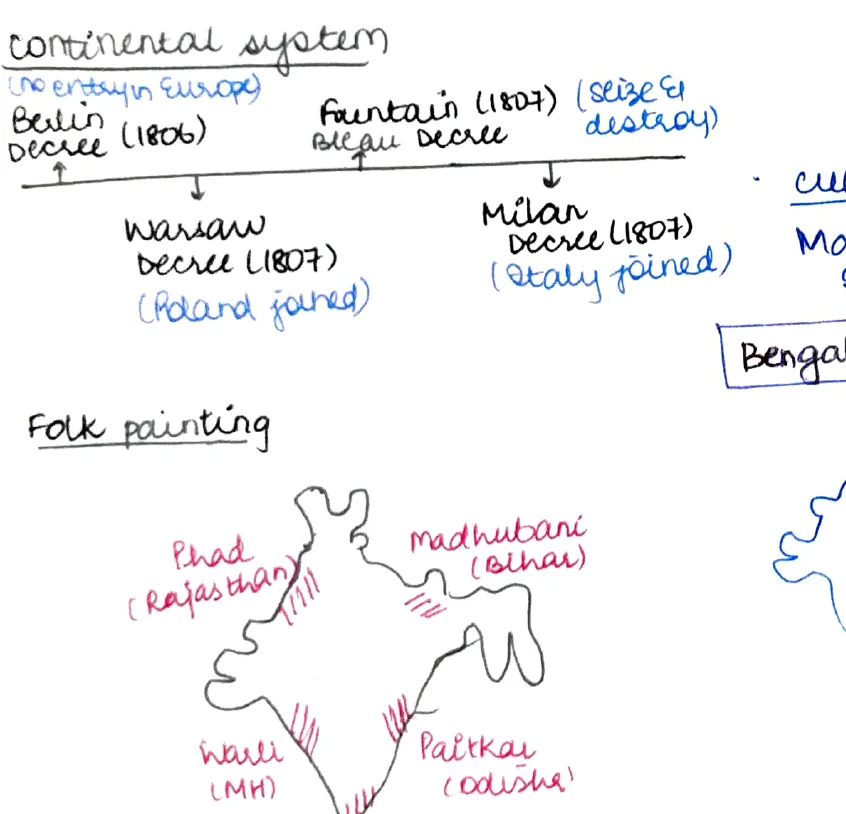 Continental system
(no entry in Europe)
Berlin
Decree (1806)
Fountain (1807)
Bleau Decree
(seize &
destroy)
Warsaw
Decree (1807)
(Poland joined)
Milan
Decree (1807)
(Italy joined)
Bengal
Folk painting
Phad
(Rajasthan)
Madhubani
(Bihar)
Warli
(MH)
Paitkar
(Odisha)